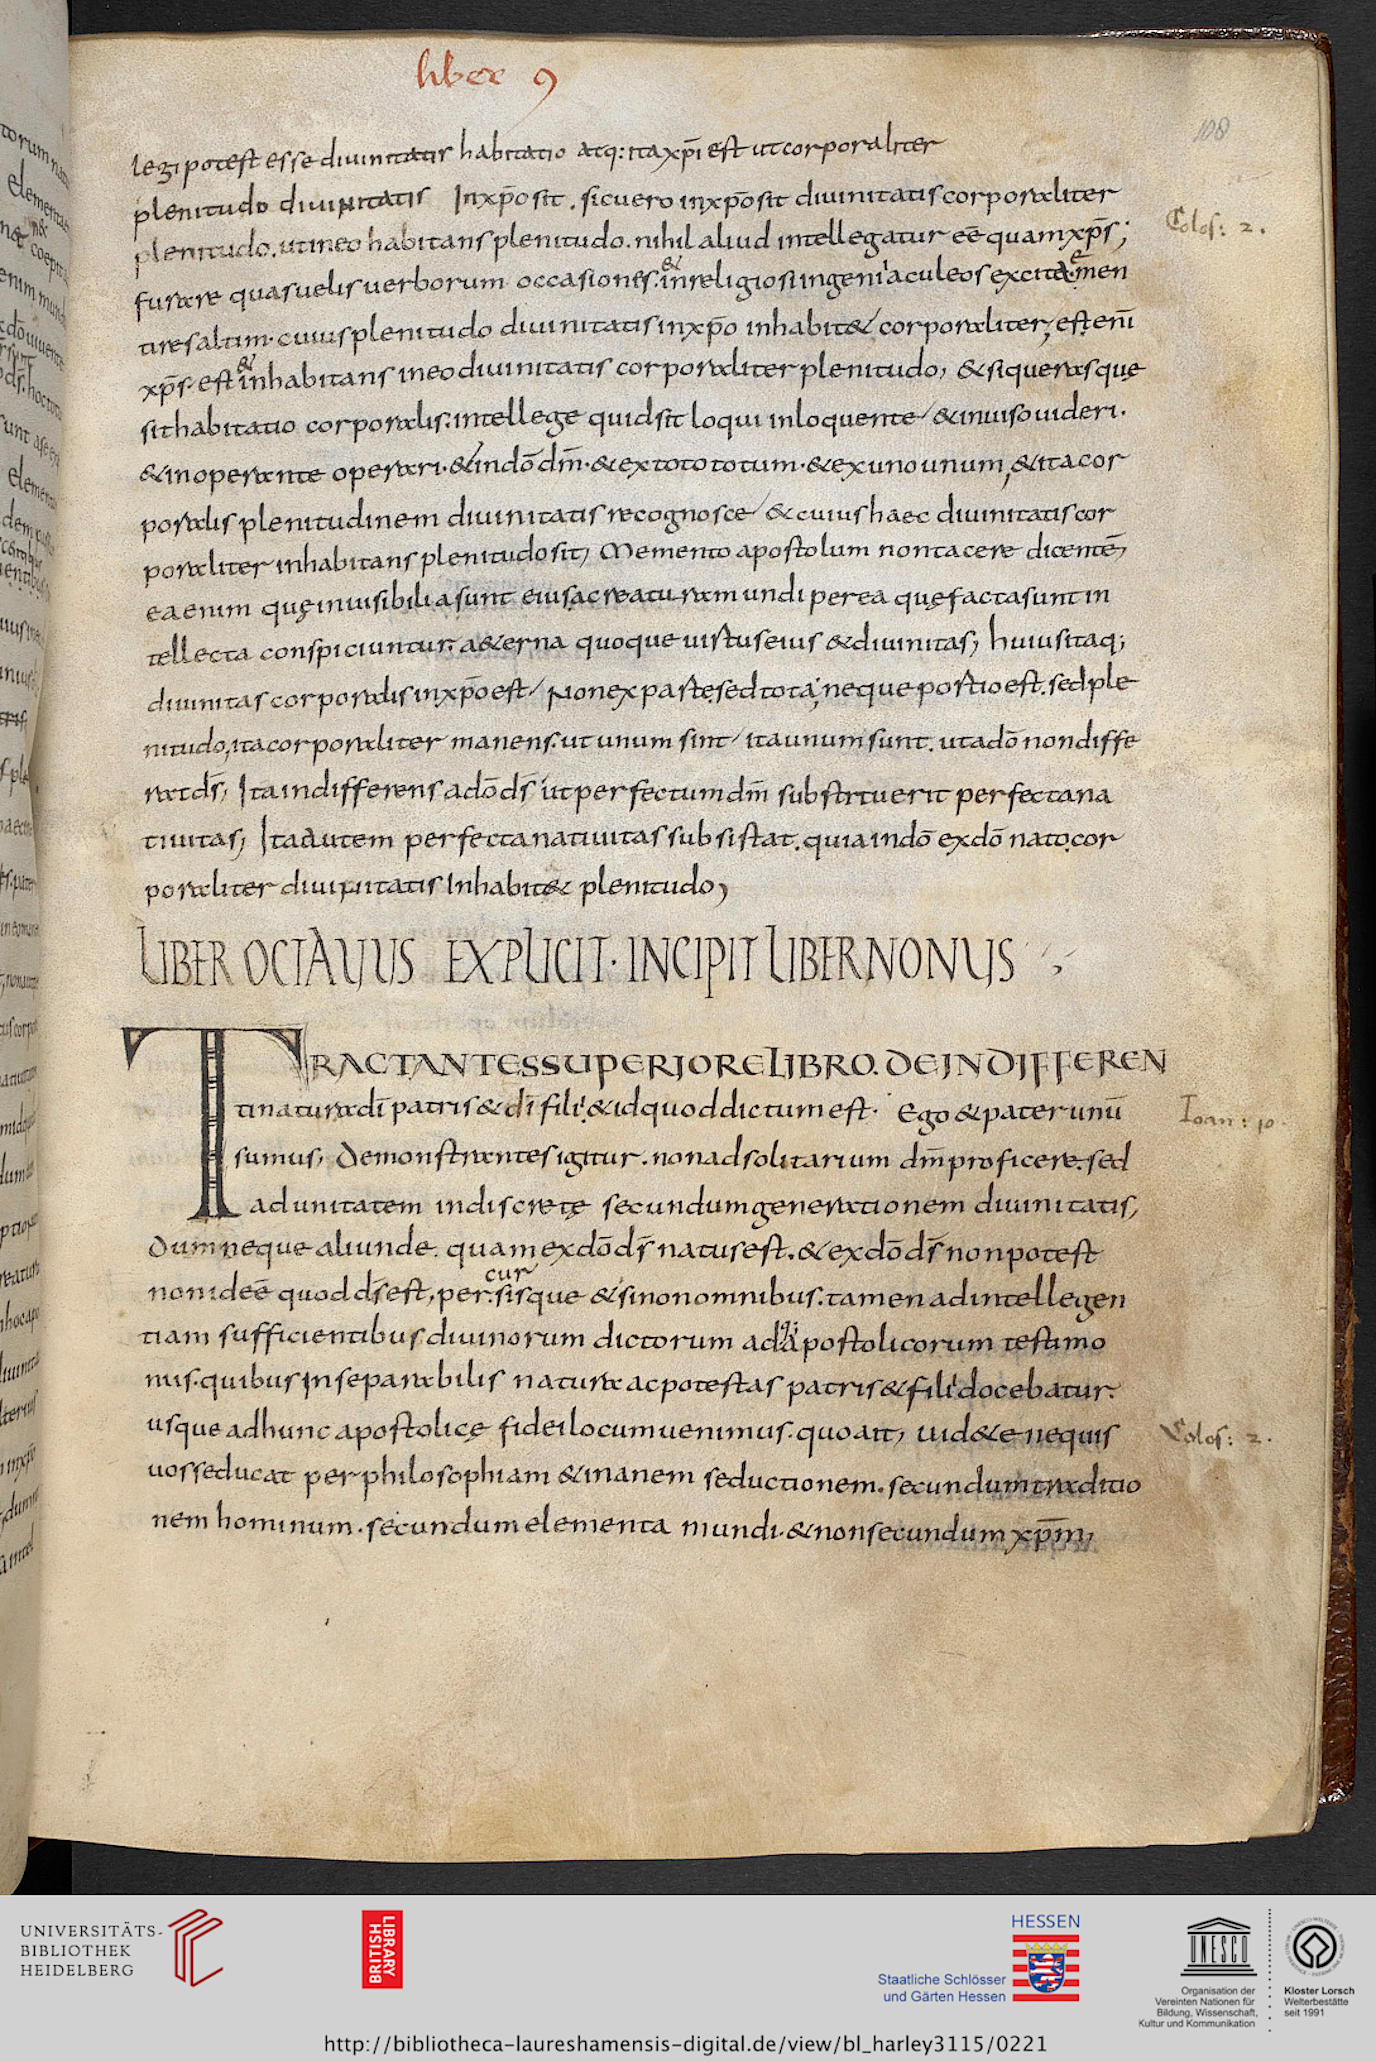 liber 9
108
legi potest esse divinitatis habitatio atq: ita xp̄i est ut corporaliter
plenitudo divinitatis Inxp̄o sit. sicuero inxp̄o sit divinitatis corporaliter
Colos: 2.
plenitudo. utineo habitans plenitudo. nihil aliud intellegatur eē quam xp̄s;
furare quasuelis uerborum occasiones. & inreligiosi ingenii aculeos excita. e men
tire saltim. cuius plenitudo divinitatis inxp̄o inhabit& corporaliter, est enī
xp̄s. est & inhabitans ineo divinitatis corporaliter plenitudo, & si queras quę
sit habitatio corporalis. intellege quid sit loqui inloquente & inuiso uideri.
& inoperante operari. & indō dm̄. & ex toto totum. & ex uno unum, & ita cor
poralis plenitudinem divinitatis recognosce & cuius haec divinitatis cor
poraliter inhabitans plenitudo sit, Memento apostolum non tacere dicentē,
ea enim quę inuisibilia sunt eius a creatura mundi per ea quę facta sunt in
tellecta conspiciuntur. a&erna quoque uirtus eius & divinitas, huius itaq;
divinitas corporalis inxp̄o est Non ex parte. sed tota; neque portio est. sed ple
nitudo, ita corporaliter manens. ut unum sint ita unum sunt. ut adō non diffe
rat ds̄, Ita indifferens adō ds̄ ut perfectum dm̄ substituerit perfecta na
tiuitas, Ita autem perfecta natiuitas subsistat. quia indō exdō nato. cor
poraliter divinitatis Inhabit& plenitudo,
LIBER OCTAVUS EXPLICIT. INCIPIT LIBER NONUS
TRACTANTES SUPERIORE LIBRO. DE INDIFFEREN
ti natura dī patris & dī fili. & id quod dictum est. Ego & pater unū
Ioan: 10.
sumus, Demonstrantes igitur. non ad solitarium dm̄ proficere. sed
ad unitatem indiscretę secundum generationem divinitatis,
Dum neque aliunde. quam exdō ds̄ natus est. & exdō ds̄ non potest
non id eē quod ds̄ est, per cur sisque & si non omnibus. tamen ad intellegen
tiam sufficientibus divinorum dictorum adq; Apostolicorum testimo
niis. quibus inseparabilis natura ac potestas patris & fili docebatur.
usque ad hunc apostolicę fidei locum uenimus. quo ait, uid&e ne quis
Colos: 2.
uos seducat per philosophiam & inanem seductionem. secundum traditio
nem hominum. secundum elementa mundi. & non secundum xp̄m,
UNIVERSITÄTS-
BIBLIOTHEK
HEIDELBERG
BRITISH
LIBRARY
HESSEN
Staatliche Schlösser
und Gärten Hessen
UNESCO
Organisation der
Vereinten Nationen für
Bildung, Wissenschaft,
Kultur und Kommunikation
Kloster Lorsch
Welterbestätte
seit 1991
http://bibliotheca-laureshamensis-digital.de/view/bl_harley3115/0221